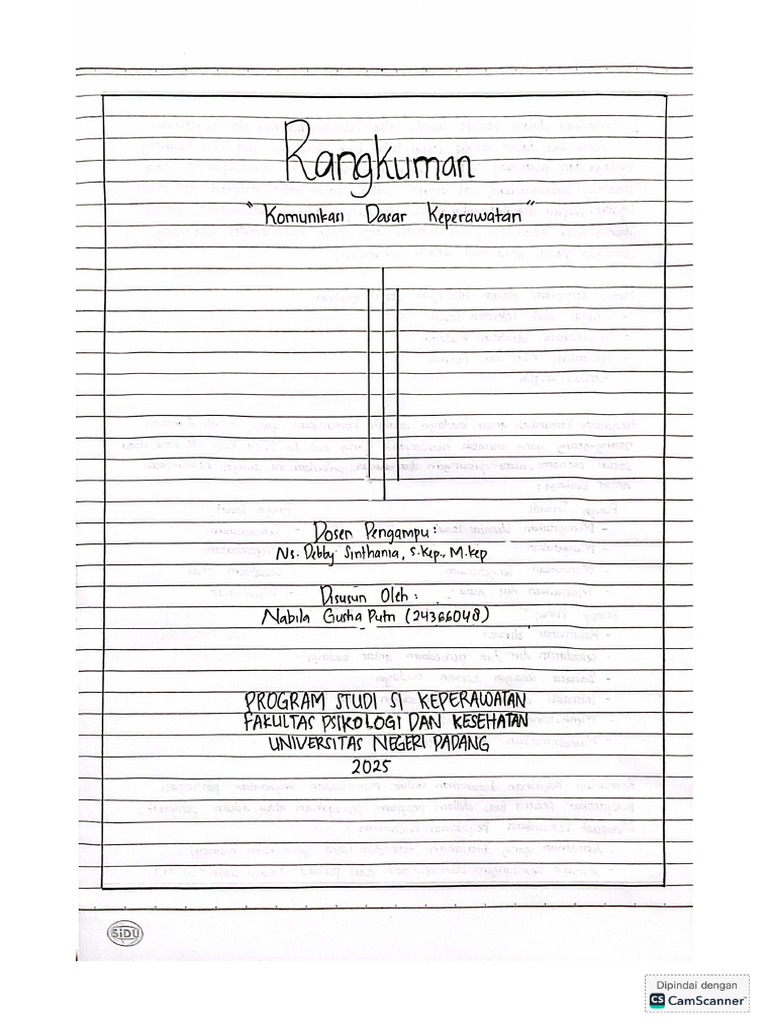 Rangkuman
"Komunikasi Dasar Keperawatan"
Dosen Pengampu:
Ns. Debby Sinthania, S.Kep., M.Kep
Disusun Oleh :
Nabila Gusha Putri (24366048)
PROGRAM STUDI S1 KEPERAWATAN
FAKULTAS PSIKOLOGI DAN KESEHATAN
UNIVERSITAS NEGERI PADANG
2025
SiDU
Dipindai dengan
CS CamScanner